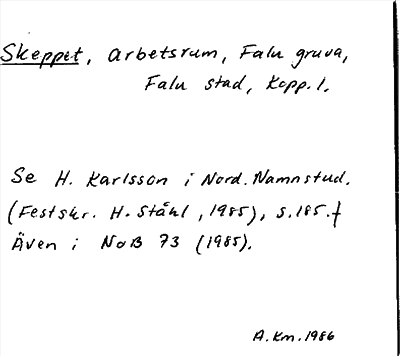 Skeppet, arbetsrum, Falu gruva,
Falu stad, Kopp. l.
Se H. Karlsson i Nord. Namnstud.
(Festskr. H. Ståhl, 1985), s. 185. f
Även i NoB 73 (1985).
A. Km. 1986